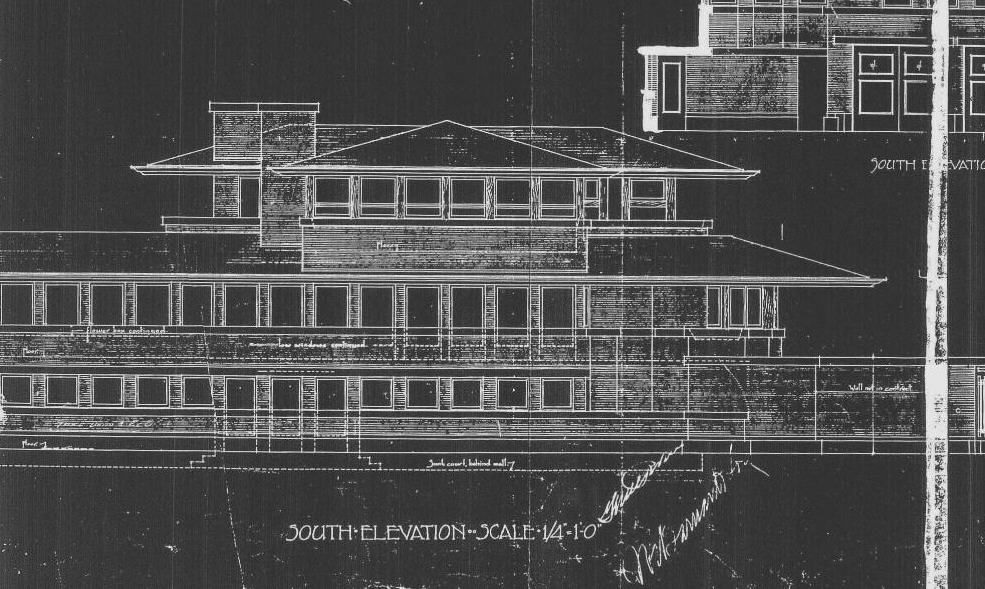 SOUTH E EVATIO
Floor
flower box continued
low windows continued
Floor
Wall not in contract
Floor
Sunk court, behind wall
SOUTH·ELEVATION··SCALE·1/4"=1'-0"